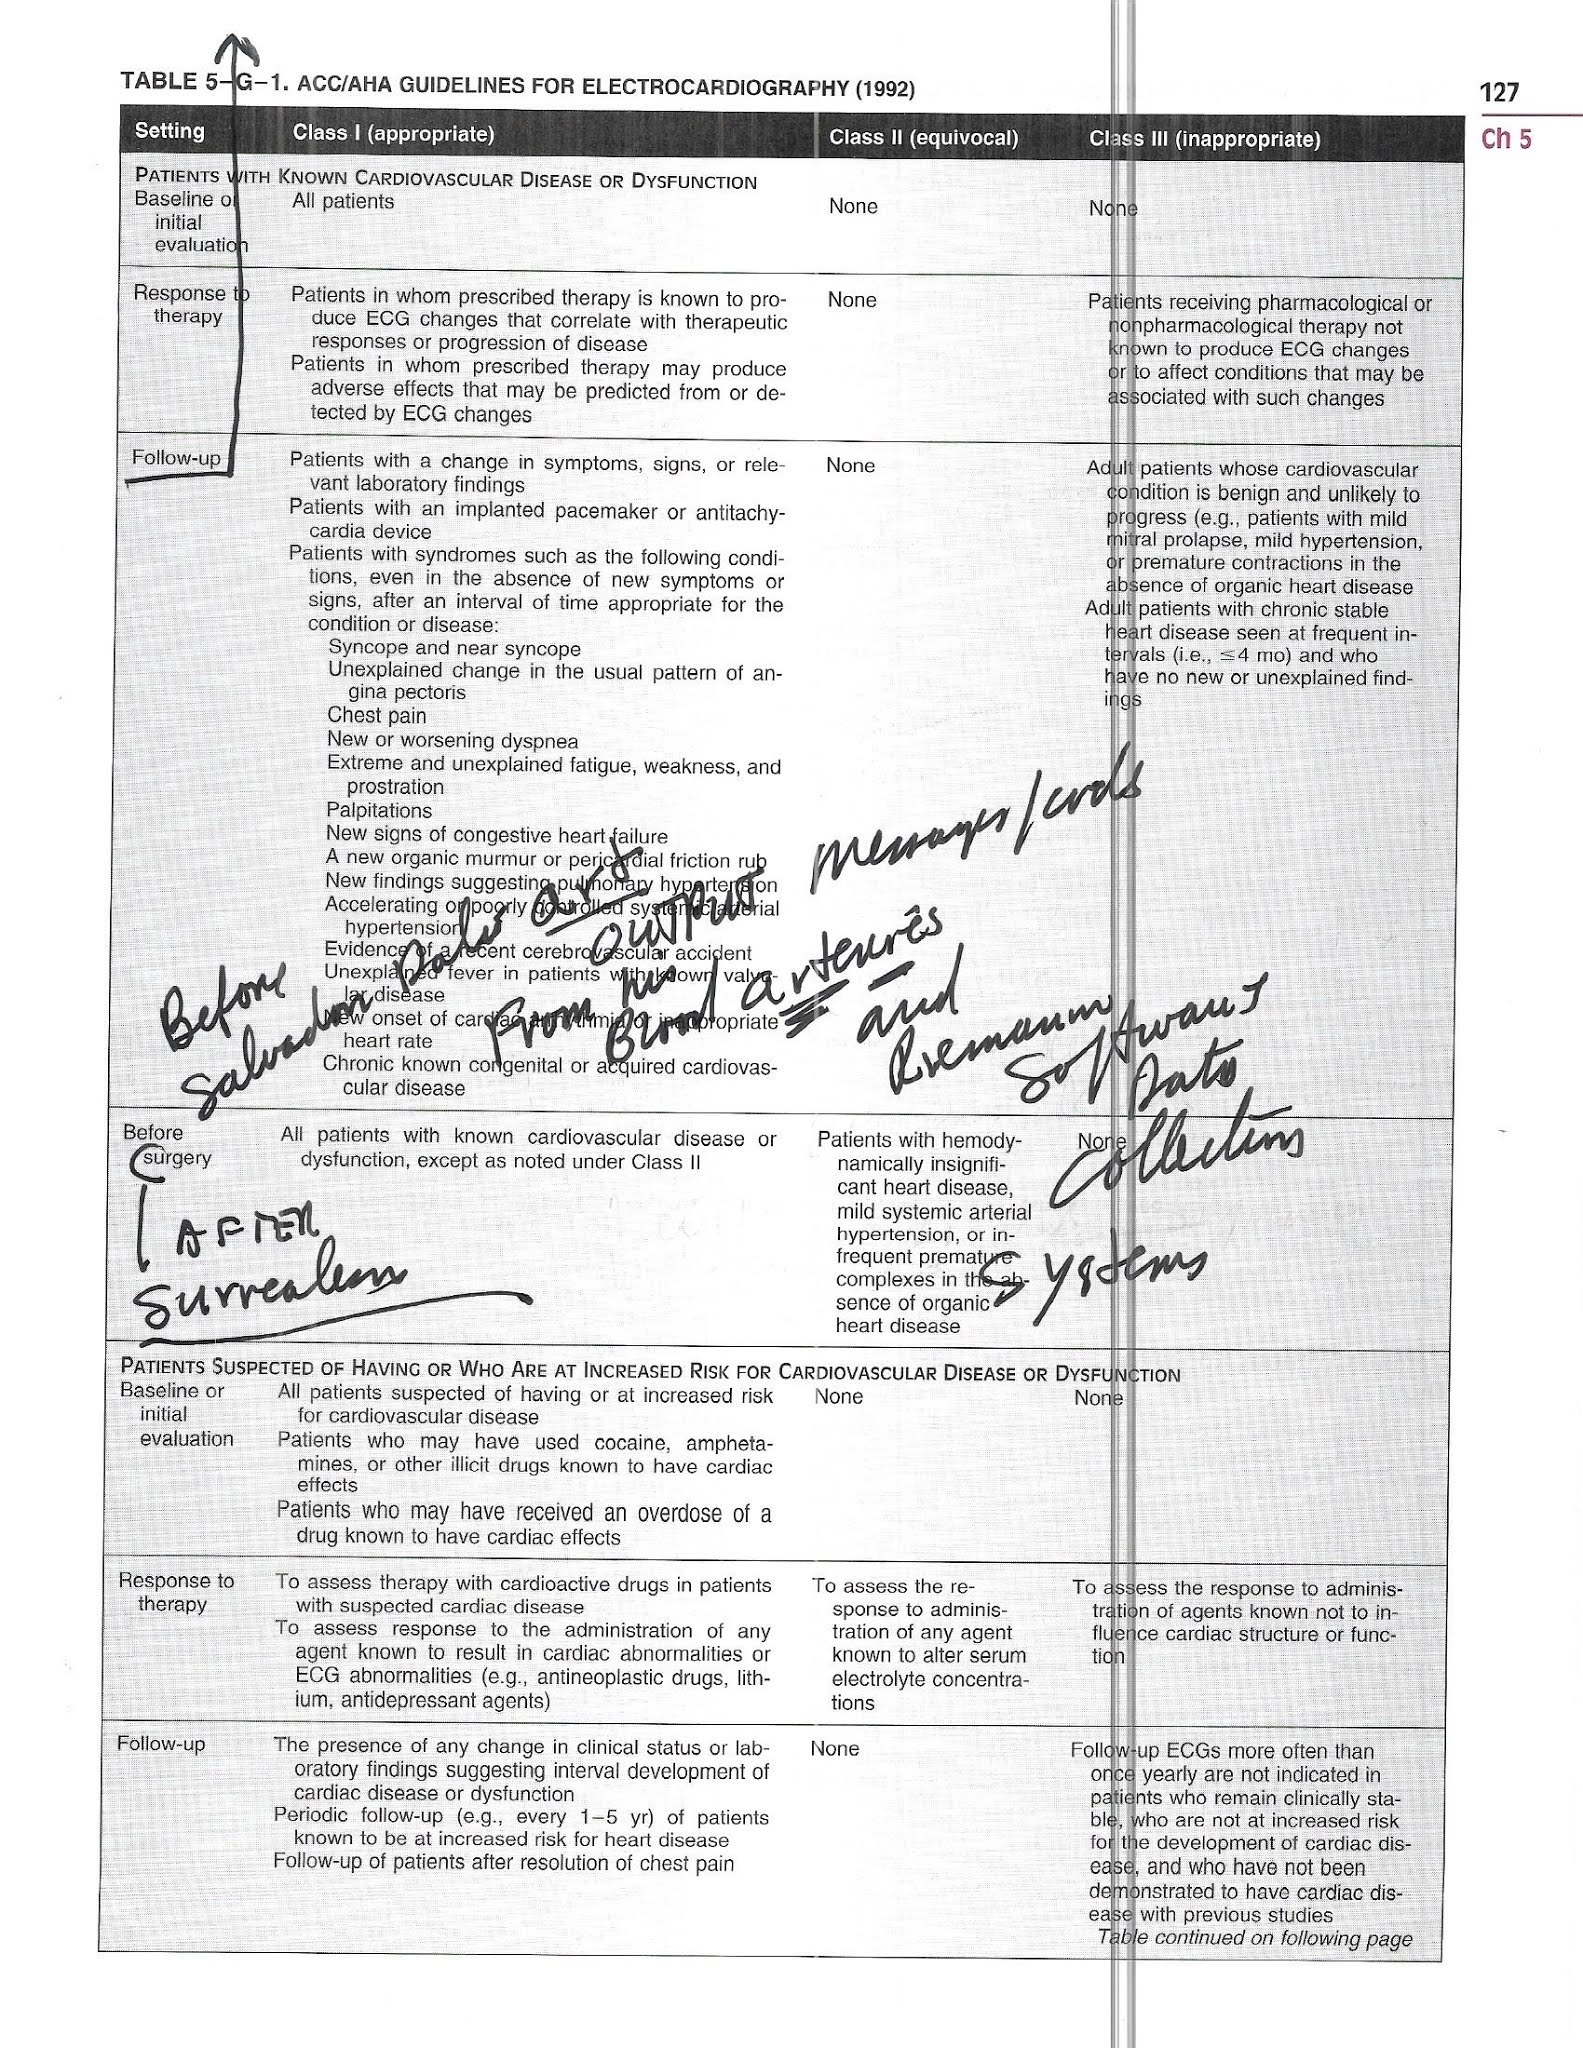 TABLE 5–G–1. ACC/AHA GUIDELINES FOR ELECTROCARDIOGRAPHY (1992)
127
Ch 5
Setting
Class I (appropriate)
Class II (equivocal)
Class III (inappropriate)
PATIENTS WITH KNOWN CARDIOVASCULAR DISEASE OR DYSFUNCTION
Baseline or
initial
evaluation
All patients
None
None
Response to
therapy
Patients in whom prescribed therapy is known to pro-
duce ECG changes that correlate with therapeutic
responses or progression of disease
Patients in whom prescribed therapy may produce
adverse effects that may be predicted from or de-
tected by ECG changes
None
Patients receiving pharmacological or
nonpharmacological therapy not
known to produce ECG changes
or to affect conditions that may be
associated with such changes
Follow-up
Patients with a change in symptoms, signs, or rele-
vant laboratory findings
Patients with an implanted pacemaker or antitachy-
cardia device
Patients with syndromes such as the following condi-
tions, even in the absence of new symptoms or
signs, after an interval of time appropriate for the
condition or disease:
Syncope and near syncope
Unexplained change in the usual pattern of an-
gina pectoris
Chest pain
New or worsening dyspnea
Extreme and unexplained fatigue, weakness, and
prostration
Palpitations
New signs of congestive heart failure
A new organic murmur or pericardial friction rub
New findings suggesting pulmonary hypertension
Accelerating or poorly controlled systemic arterial
hypertension
Evidence of a recent cerebrovascular accident
Unexplained fever in patients with known valvu-
lar disease
New onset of cardiac arrhythmia or inappropriate
heart rate
Chronic known congenital or acquired cardiovas-
cular disease
None
Adult patients whose cardiovascular
condition is benign and unlikely to
progress (e.g., patients with mild
mitral prolapse, mild hypertension,
or premature contractions in the
absence of organic heart disease
Adult patients with chronic stable
heart disease seen at frequent in-
tervals (i.e., ≤4 mo) and who
have no new or unexplained find-
ings
Before
Salvador Dali art
OUTPUT messages/
From his
Blood arteries
and
Riemann
Software
Data
Collections
Systems
Before
surgery
AFTER
Surrealism
All patients with known cardiovascular disease or
dysfunction, except as noted under Class II
Patients with hemody-
namically insignifi-
cant heart disease,
mild systemic arterial
hypertension, or in-
frequent premature
complexes in the ab-
sence of organic
heart disease
None
PATIENTS SUSPECTED OF HAVING OR WHO ARE AT INCREASED RISK FOR CARDIOVASCULAR DISEASE OR DYSFUNCTION
Baseline or
initial
evaluation
All patients suspected of having or at increased risk
for cardiovascular disease
Patients who may have used cocaine, ampheta-
mines, or other illicit drugs known to have cardiac
effects
Patients who may have received an overdose of a
drug known to have cardiac effects
None
None
Response to
therapy
To assess therapy with cardioactive drugs in patients
with suspected cardiac disease
To assess response to the administration of any
agent known to result in cardiac abnormalities or
ECG abnormalities (e.g., antineoplastic drugs, lith-
ium, antidepressant agents)
To assess the re-
sponse to adminis-
tration of any agent
known to alter serum
electrolyte concentra-
tions
To assess the response to adminis-
tration of agents known not to in-
fluence cardiac structure or func-
tion
Follow-up
The presence of any change in clinical status or lab-
oratory findings suggesting interval development of
cardiac disease or dysfunction
Periodic follow-up (e.g., every 1–5 yr) of patients
known to be at increased risk for heart disease
Follow-up of patients after resolution of chest pain
None
Follow-up ECGs more often than
once yearly are not indicated in
patients who remain clinically sta-
ble, who are not at increased risk
for the development of cardiac dis-
ease, and who have not been
demonstrated to have cardiac dis-
ease with previous studies
Table continued on following page